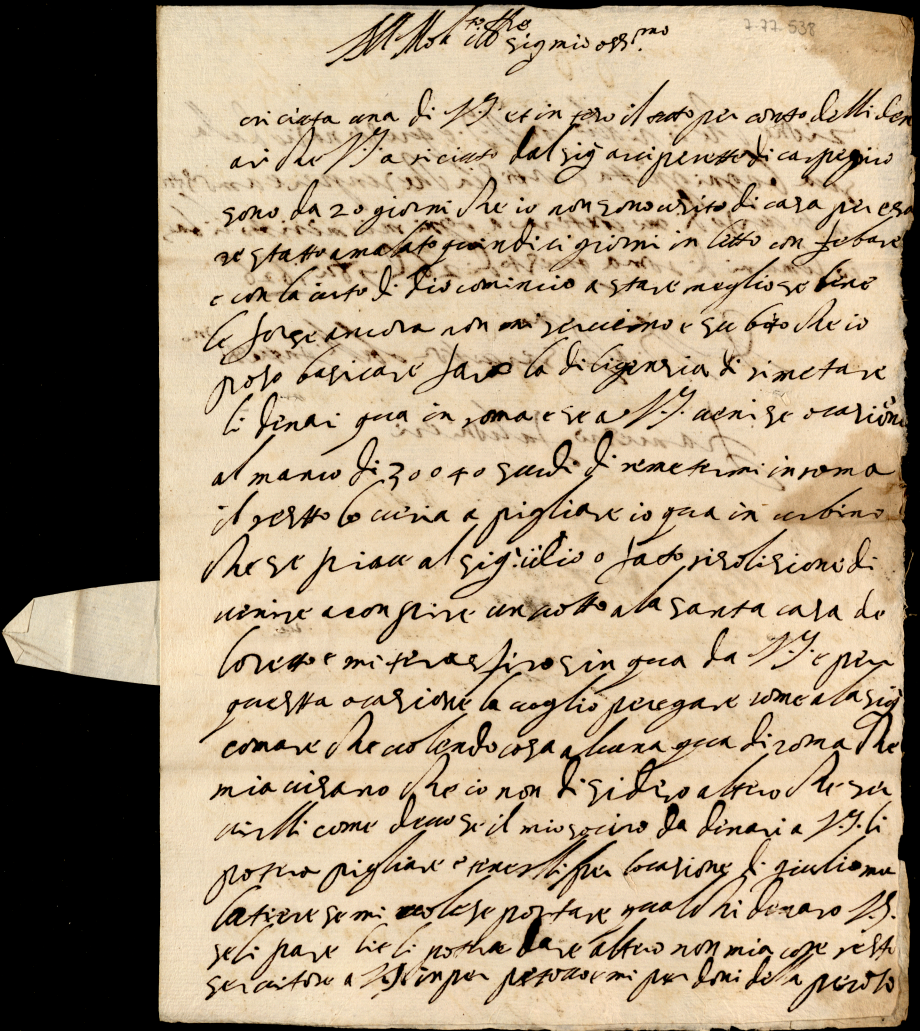 7-77-538
Al Molto Ill.re
sig mio oss.mo
o riciuta una di V.S. et inteso il tuto per conto delli den
ari che V.S. a riciuto dal sig arciperette di carpegnio
sono da 20 giorni che io non sono usito di casa per esa
re statto amalato quindici giorni in letto con febare
e con la iuto di dio comincio a stare meglio se bine
le forse ancora non mi serveino e subito che io
poso basicare faro la diligensia di rimetare
li dinari qua in roma e se a V.S. venise ocasione
al manco di 30 o 40 scudi di remetermi in roma
il restto lo averia a pigliare io qua in urbino
che se piace al sig iulio o fatto risolisione di
venire a conpire un votto a la santa casa de
loretto e mi trasfiro sin qua da V.S. e per
questta ocasione la voglio peregare come a la sig
comare che volendo cosa alcuna qua di roma che
mi avisano che io non disidero altro che ser
virlli come devo se il mio socero da dinari a V.S. li
potera pigliare e tenerlli per locasione di giulio ma
latiere se mi volese portare qualchi denaro V.S.
se li pare lie li potra dare altro non mi a core resto
servitore a V.S. in per petovo e mi per doni della peroso